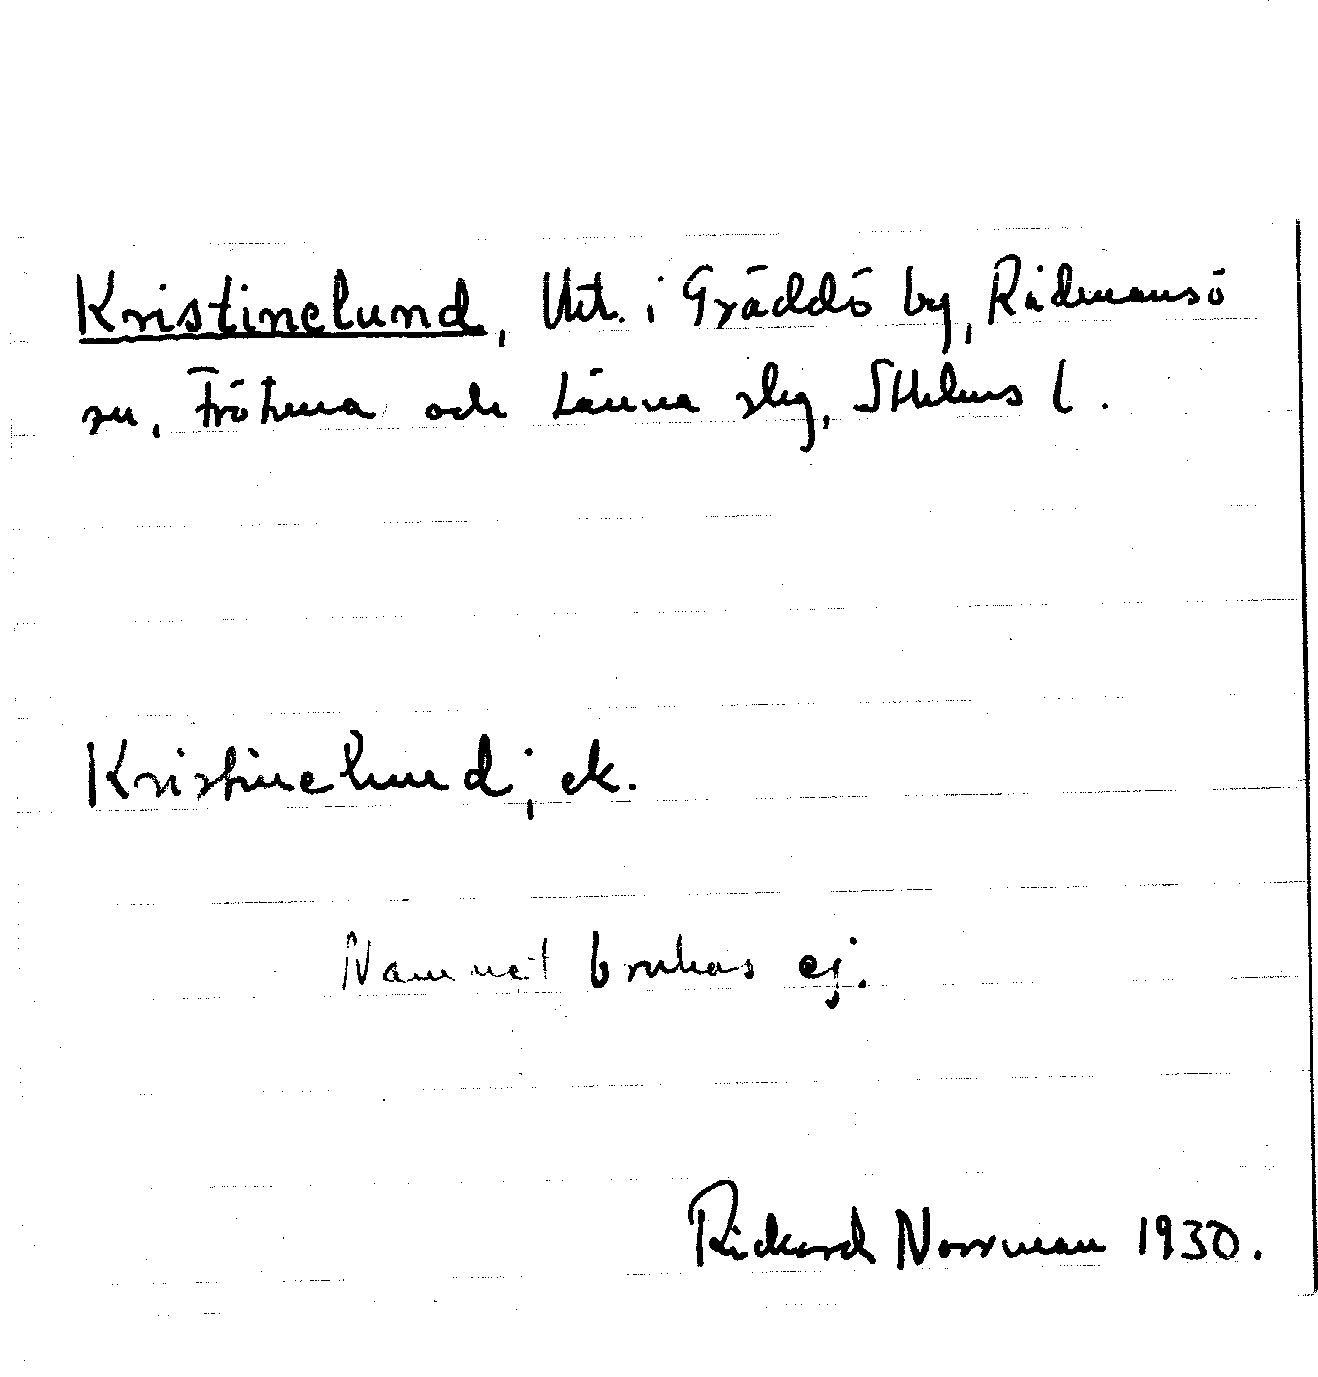 Kristinelund, Utt. i Gräddö by, Rådmansö
sn, Frötuna och Länna slg, Sthlms l.
Kristinelund; ek.
Namnet brukas ej.
Rickard Norrman 1930.